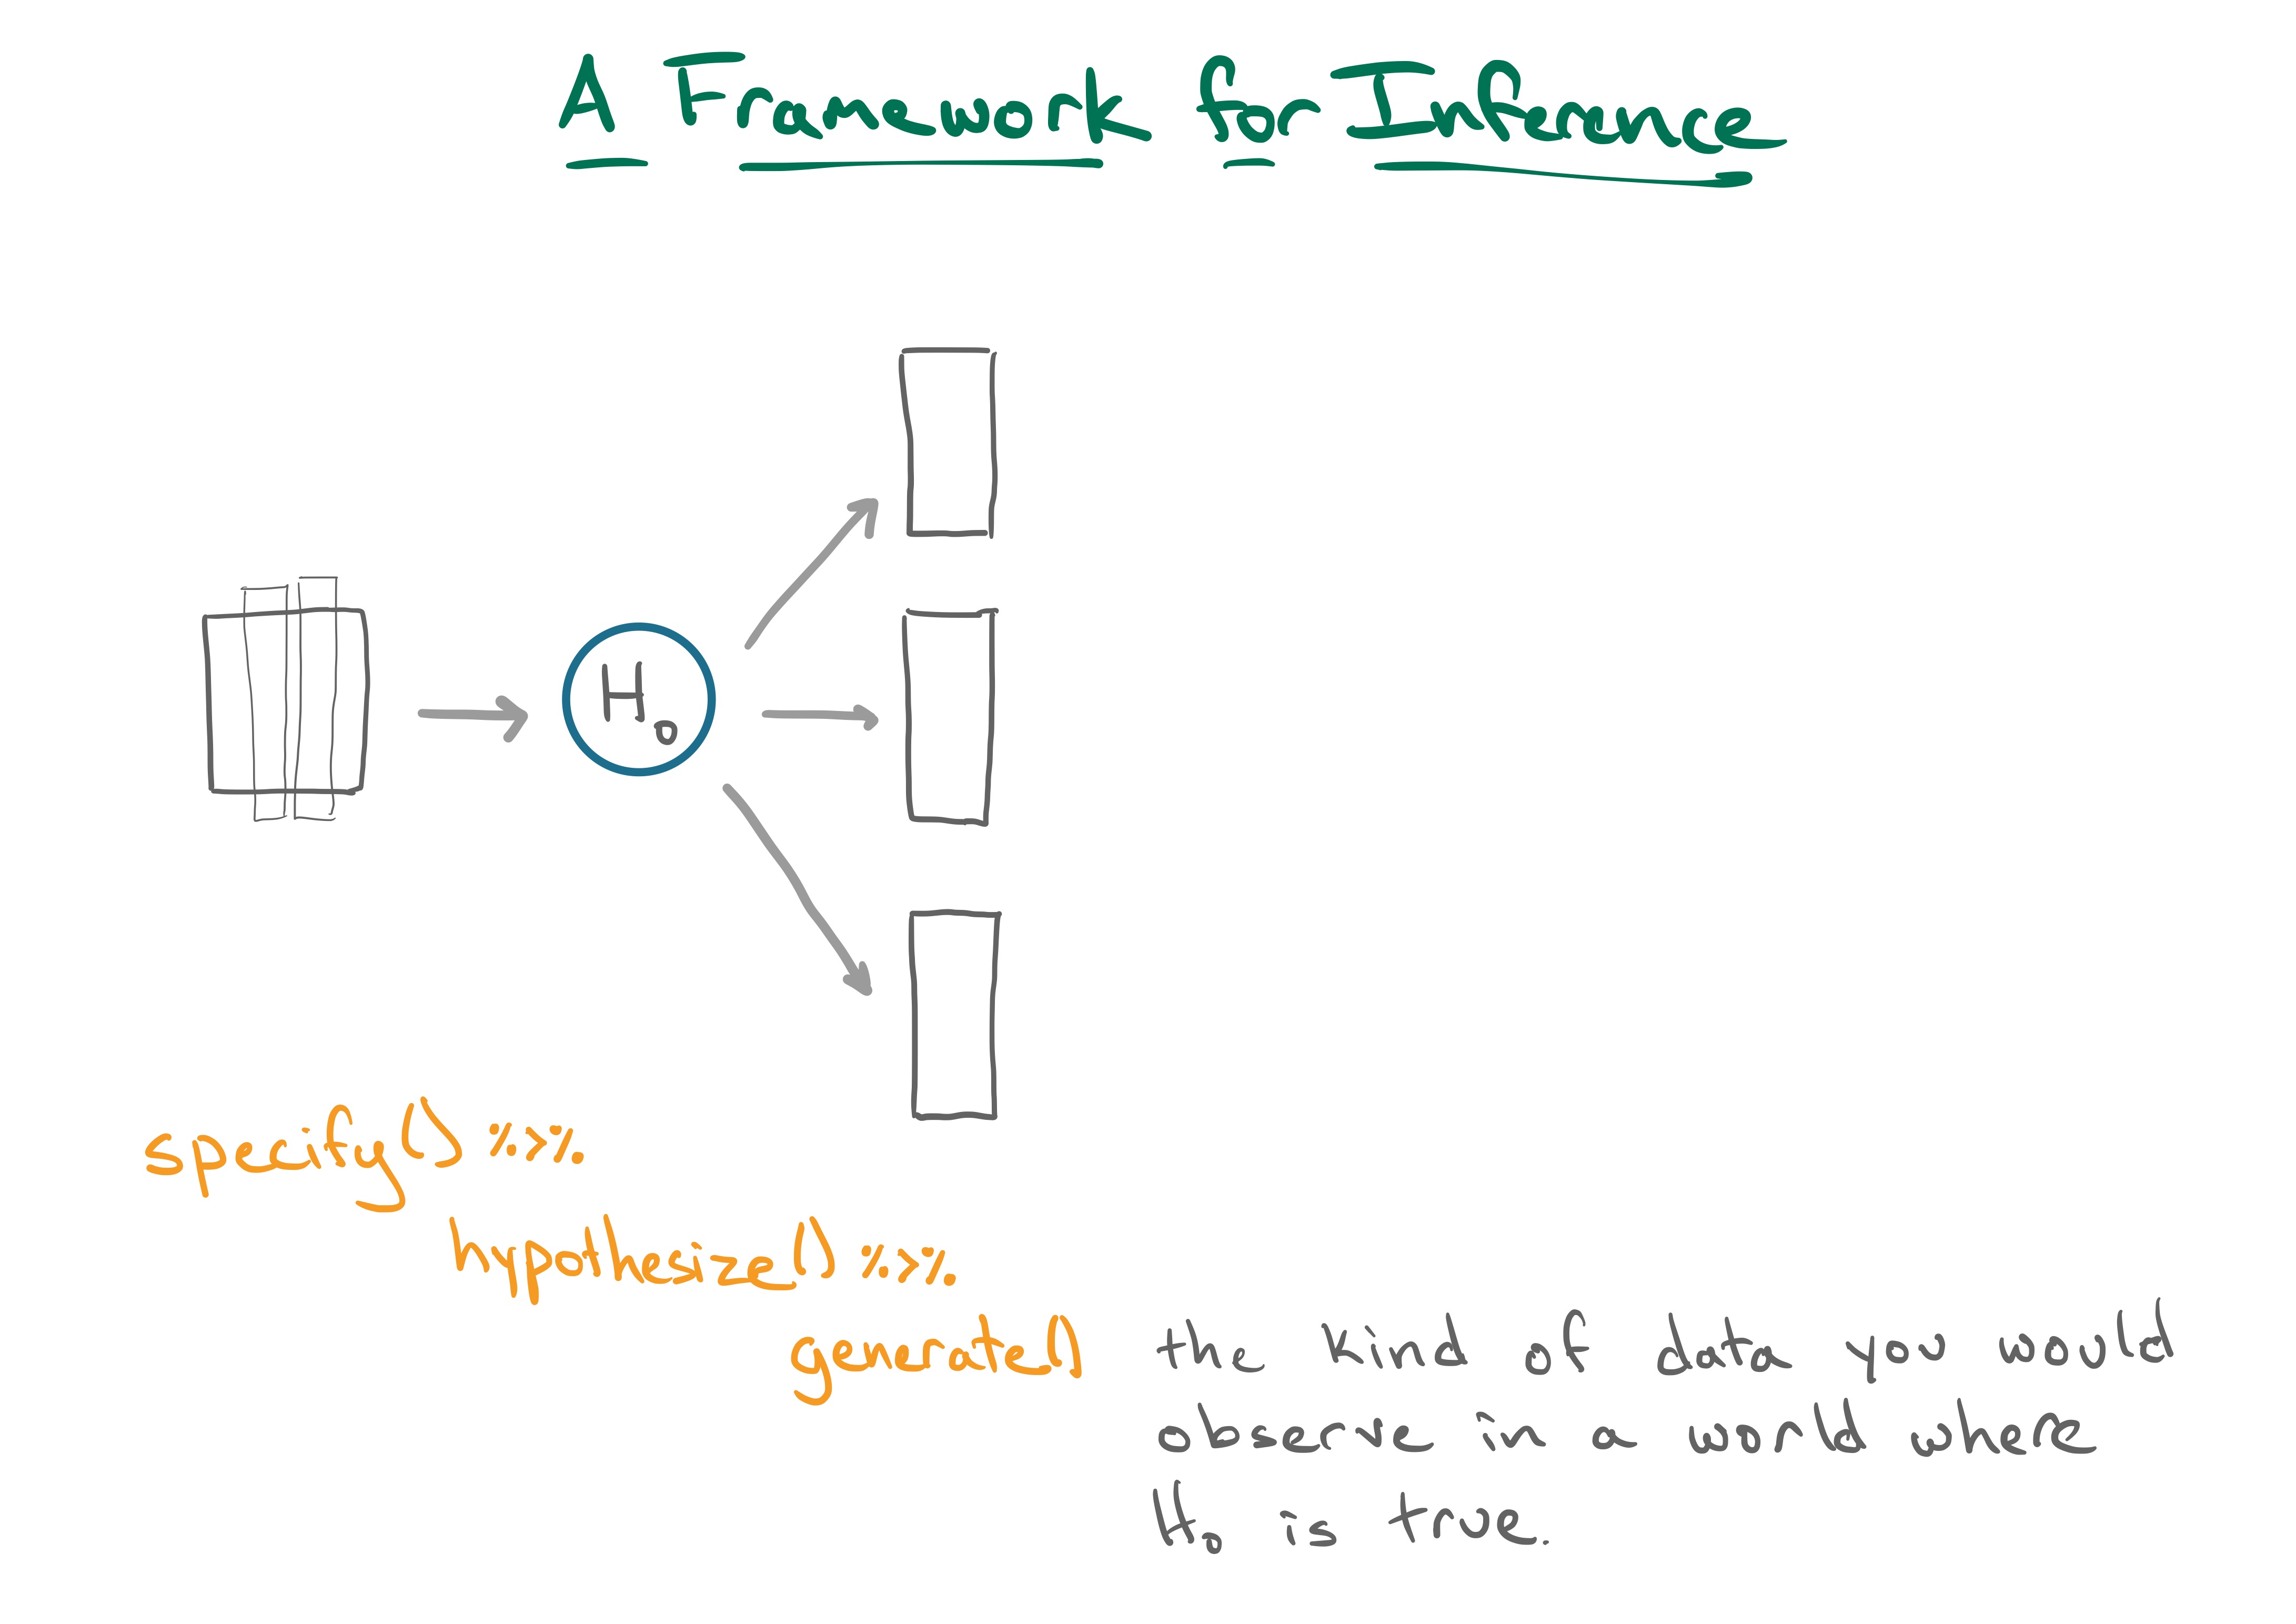 A Framework for Inference
H₀
specify() %>%
hypothesize() %>%
generate() the kind of data you would
observe in a world where
H₀ is true.